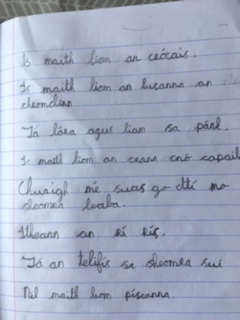 Is maith lian an ceócais.
Is maith liom an lusanna an
Tá lára agus lian sa párl.
Is liom an ceann cnó capaill
Chuaigh mé suas go dtí mo
sheomra leaba.
Itheann an rí rís.
Tá an telifís sa sheomra suí
Níl maith liom píseanna.